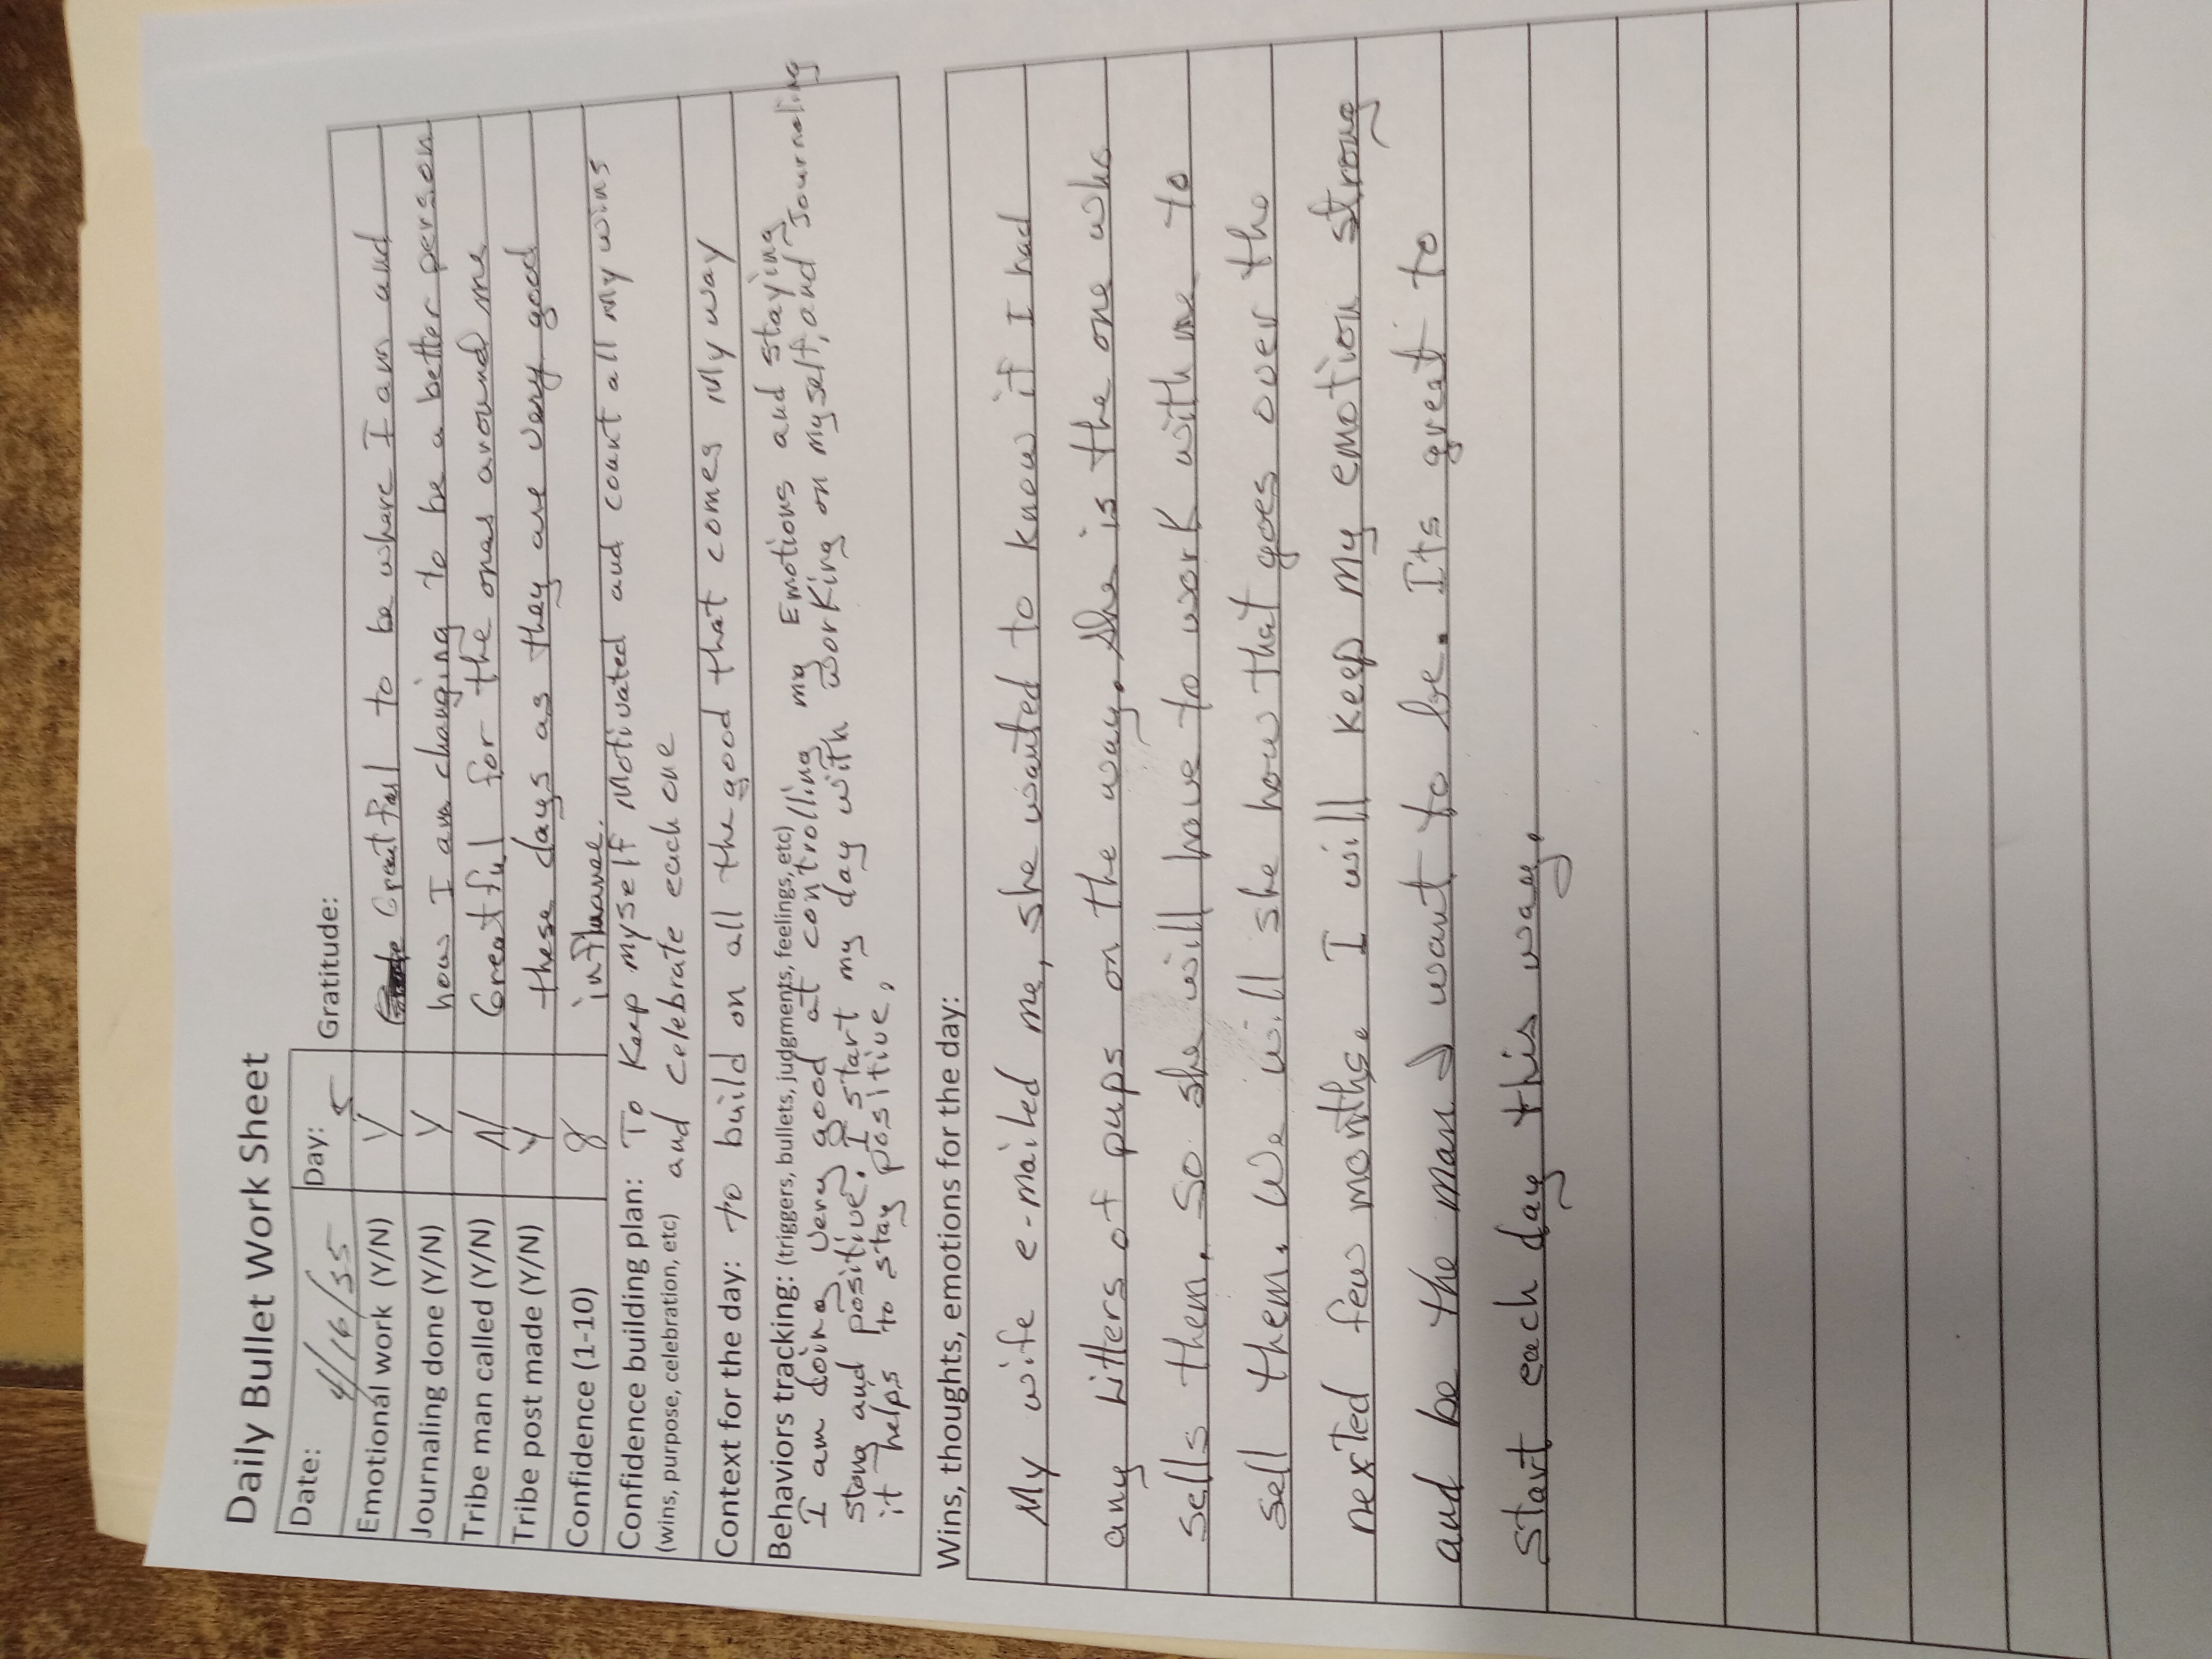 Daily Bullet Work Sheet
Date: 4/16/55 Day: 5 Gratitude:
Emotional work (Y/N) Y Greatful to be where I am and
Journaling done (Y/N) Y how I am changing to be a better person
Tribe man called (Y/N) N Greatful for the ones around me
Tribe post made (Y/N) Y these days as they are very good
Confidence (1-10) 8
Confidence building plan: To Keep myself Motivated and count all my wins
(wins, purpose, celebration, etc) and celebrate each one
Context for the day: to build on all the good that comes My way
Behaviors tracking: (triggers, bullets, judgments, feelings, etc)
I am doing very good at controlling my Emotions and staying
stong and positive. I start my day with working on myself, and Journaling
it helps to stay positive,
Wins, thoughts, emotions for the day:
My wife e-mailed me, she wanted to know if I had
any Litters of pups on the way. she is the one who
sells them. so she will have to work with me to
sell them. We will she how that goes over the
nexted few months. I will keep my emotion strong
and be the man I want to be. Its great to
start each day this way.